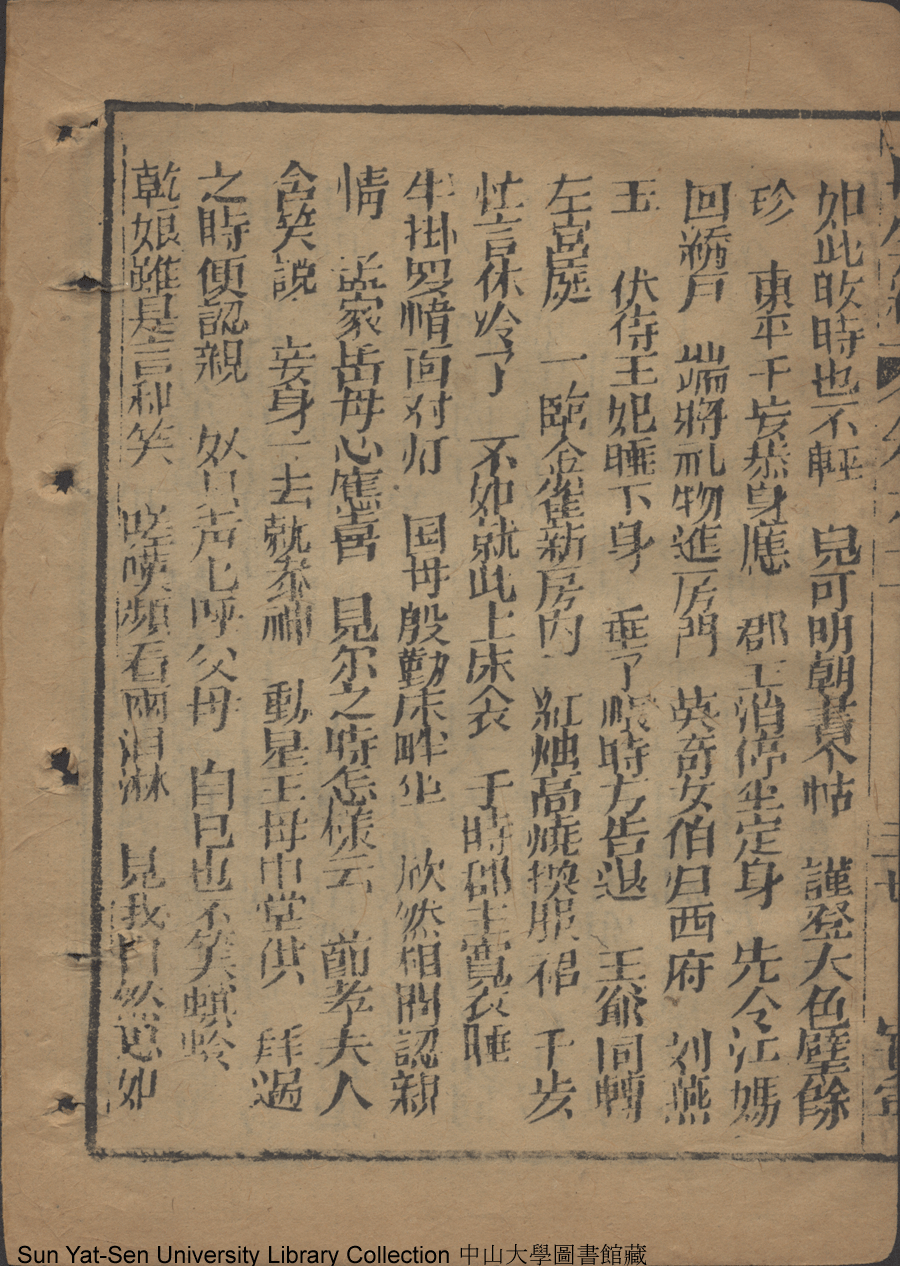 如此敃時也不輕　兒可明朝書个帖　謹登大色壁餘
珍　東平千妾恭身應　郡王消停坐定身　先令江媽
回綉戸　端將礼物進房門　英奇女伯归西府　刘燕
玉　伏侍王妃睡下身　垂了帳時方告退　王爺同轉
左宫庭　一臨金雀新房内　紅烛高燒換服裙　千岁
忙言休冷了　不如就此上床衾　于時郡主寬衣睡
牛掛罗幃面对灯　国母殷勤床畔坐　欣然相問認親
情　孟家岳母心應喜　見尔之時怎樣云　節孝夫人
含笑説　妾身一去就参神　動是王母中堂供　拜過
之時便認親　奴只声七呼父母　自已也不笑螟蛉
乾娘雖是言和笑　嗟嘆頻看兩淚淋　見我自然思如
三十七
Sun Yat-Sen University Library Collection 中山大學圖書館藏